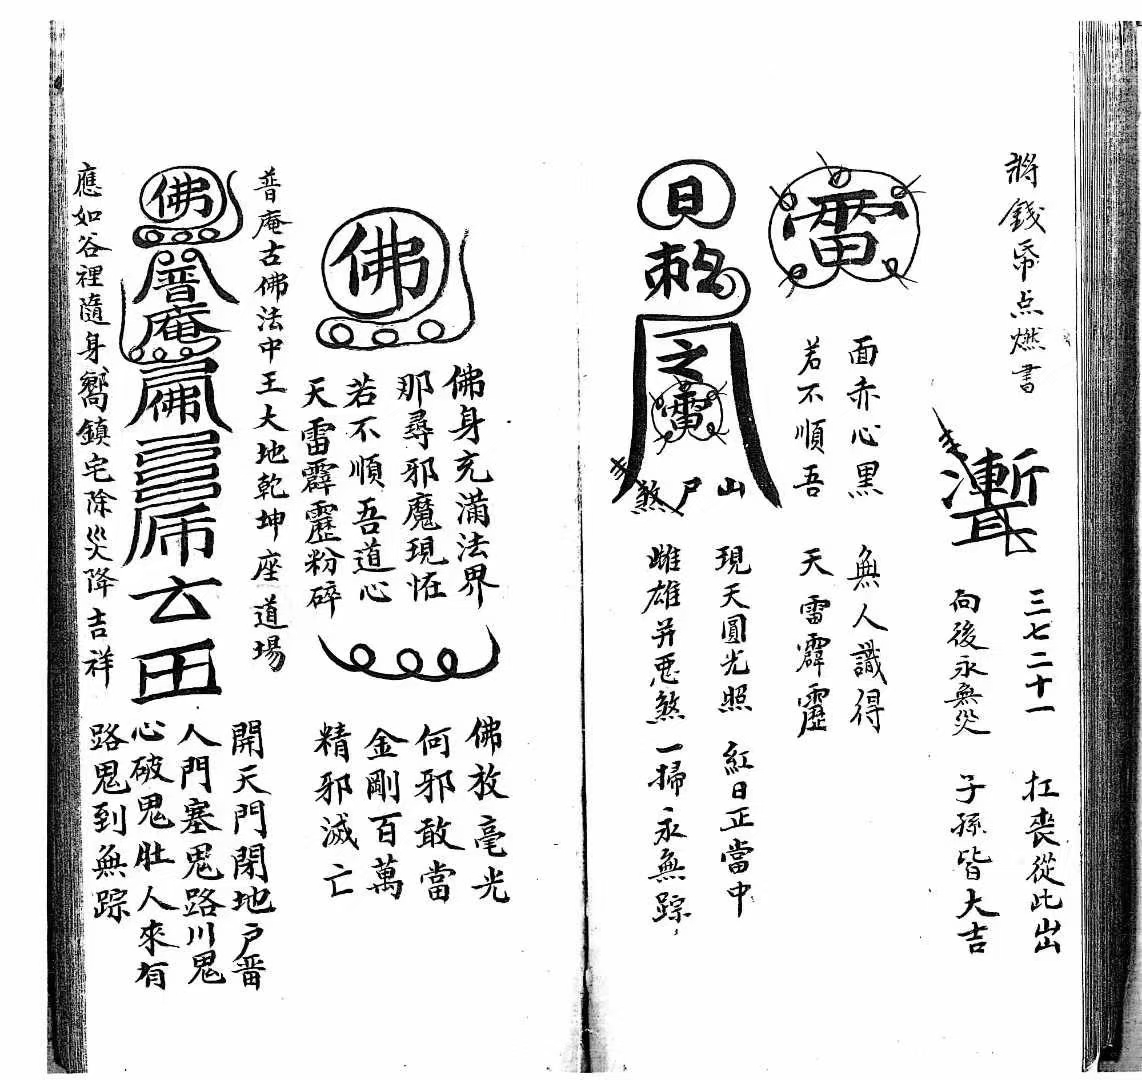 將錢帋点燃書
三七二十一
扛喪從此出
向後永無災
子孫皆大吉
雷
面赤心黑
無人識得
若不順吾
天雷霹靂
日
敕
之
雷
山
尸
煞
現天圓光照
紅日正當中
雌雄并惡煞
一掃永無踪
佛
佛身充滿法界
那尋邪魔現怪
若不順吾道心
天雷霹靂粉碎
佛放毫光
何邪敢當
金剛百萬
精邪滅亡
普庵古佛法中王大地乾坤座道場
佛
普
庵
佛
應如谷裡隨身嚮鎮宅除災降吉祥
開天門閉地户畱
人門塞鬼路川鬼
心破鬼肚人來有
路鬼到無踪